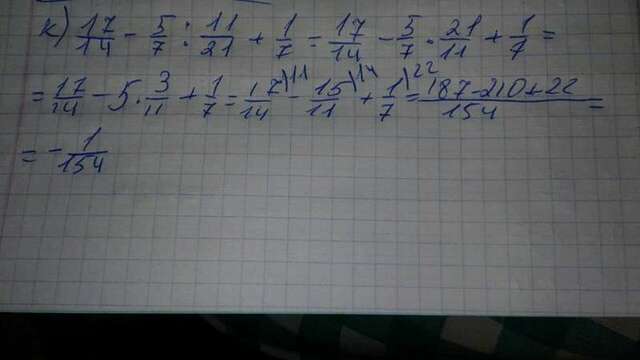 к) 17/14 - 5/7 : 11/21 + 1/7 = 17/14 - 5/7 · 21/11 + 1/7 =
= 17/14 - 5 · 3/11 + 1/7 = 17\11/14 - 15\14/11 + 1\22/7 = 187-210+22/154 =
= - 1/154